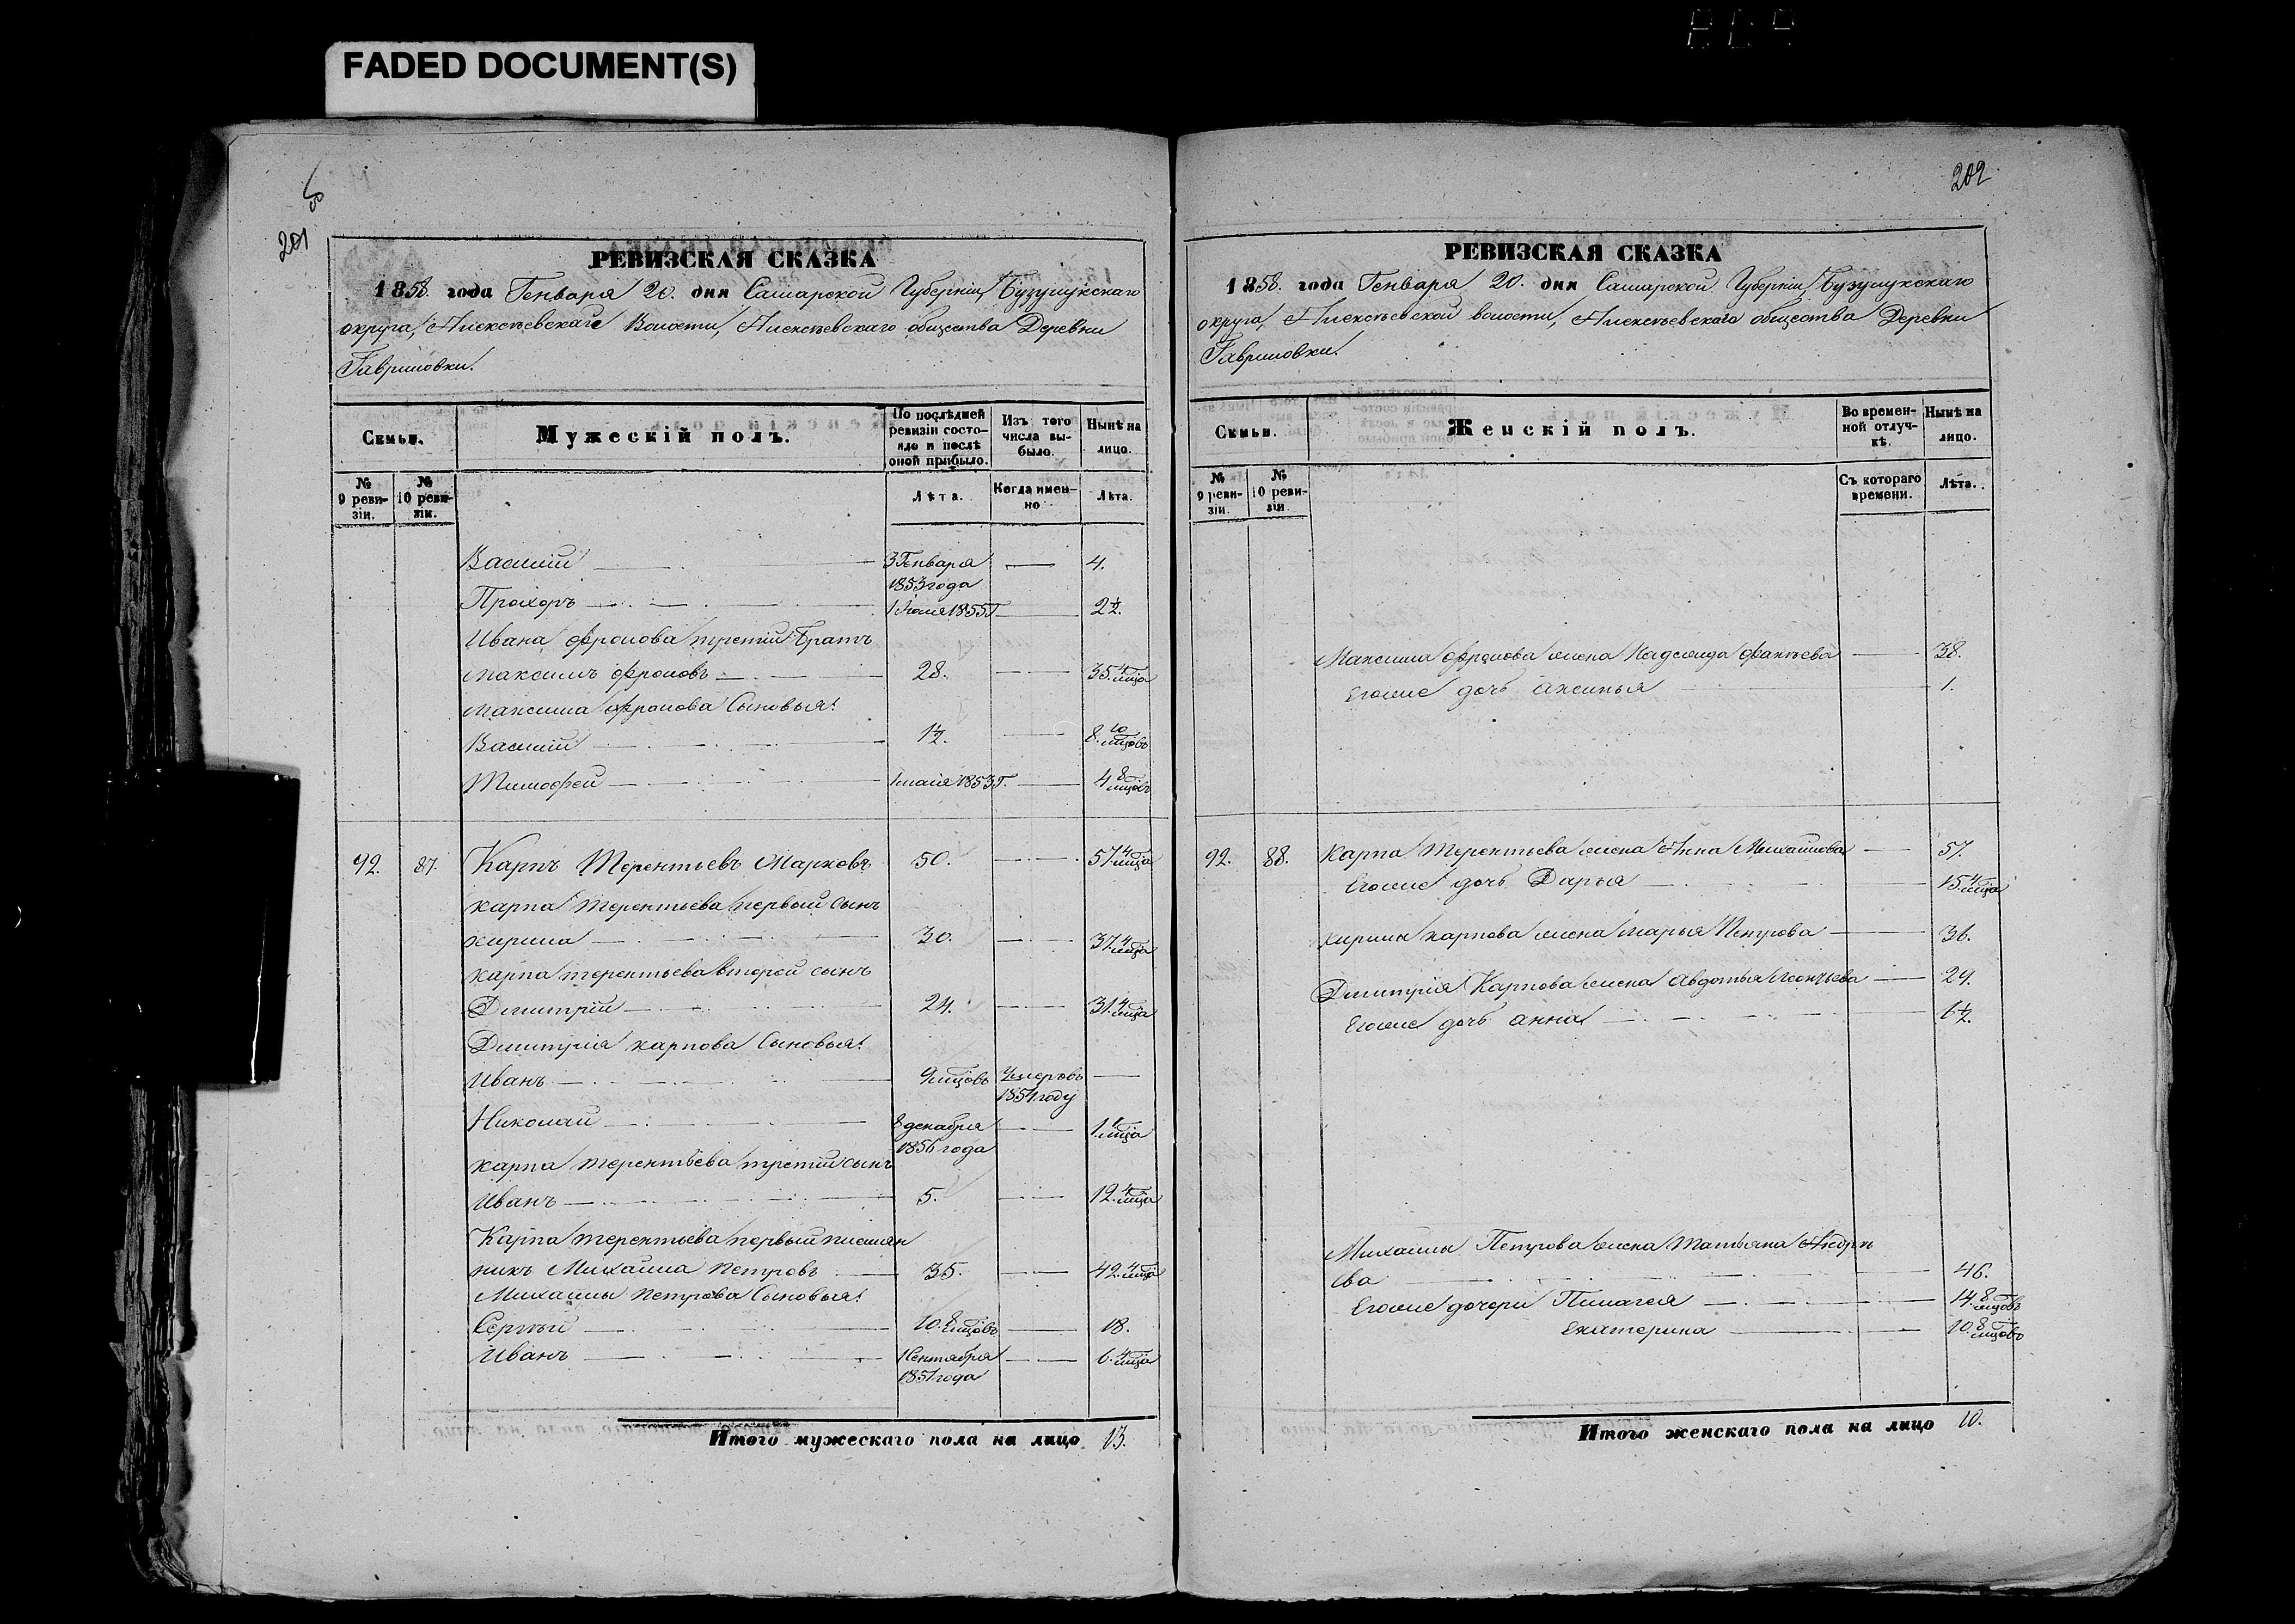 FADED DOCUMENT(S)
201
РЕВИЗСКАЯ СКАЗКА
1858. года Генваря 20. дня Самарской Губерніи, Бузулукскаго
округа, Алексѣевскаго Волости, Алексѣевскаго общества Деревни
Гавриловки.
Семьи.
Мужескій полъ.
По послѣдней ревизіи состояло и послѣ оной прибыло.
Изъ того числа выбыло.
Нынѣ на лицо.
№ 9 ревизіи.
№ 10 ревизіи.
Лѣта.
Когда именно
Лѣта.
Василій 3 Генваря 1853 года 4.
Прохоръ 1855 Г 2½.
Ивана Фролова третій братъ
Максимъ Фроловъ 28. 35. 4 мѣца
Максима Фролова Сыновья:
Василій 1½. 8. 10 мѣцовъ
Тимофей 1 мая 1853 Г. 4 8 мѣцовъ
92. 87. Карпъ Терентьевъ Марковъ 50. 57. 4 мѣца
Карпа Терентьева первый сынъ
Кирила 30. 37. 4 мѣца
Карпа Терентьева второй сынъ
Димитрій 24. 31. 4 мѣца
Димитрія Карпова Сыновья:
Иванъ 9 мѣцовъ Умеръ въ 1854 году
Николай 8 декабря 1856 года 1. 1 мѣца
Карпа Терентьева третій сынъ
Иванъ 5. 12. 4 мѣца
Карпа Терентьева первый племян
никъ Михаила Петровъ 35. 42. 4 мѣца
Михаилы Петрова Сыновья:
Сергѣй 10. 8 мѣцовъ 18.
Иванъ 1 Сентября 1851 года 6. 4 мѣца
Итого мужескаго пола на лицо 13.
202
РЕВИЗСКАЯ СКАЗКА
1858. года Генваря 20. дня Самарской Губерніи, Бузулукскаго
округа, Алексѣевской волости, Алексѣевскаго общества Деревни
Гавриловки.
Семьи.
Женскій полъ.
Во временной отлучкѣ.
Нынѣ на лицо.
№ 9 ревизіи.
№ 10 ревизіи
Съ котораго времени.
Лѣта.
Максима Фролова жена Надежда 38.
Егоже дочь Аксинья 1.
92. 88. Карпа Терентьева жена Анна Михайлова 57.
Егоже дочь Дарья 15. 4 мѣца
Кирилы Карпова жена Марья Петрова 36.
Димитрія Карпова жена Авдотья Леонтьева 29.
Егоже дочь Анна 1½.
Михаилы Петрова жена Татьяна
ева 46.
Егоже дочери Пилагея 14. 8 мѣцовъ
Екатерина 10. 8 мѣцовъ
Итого женскаго пола на лицо 10.